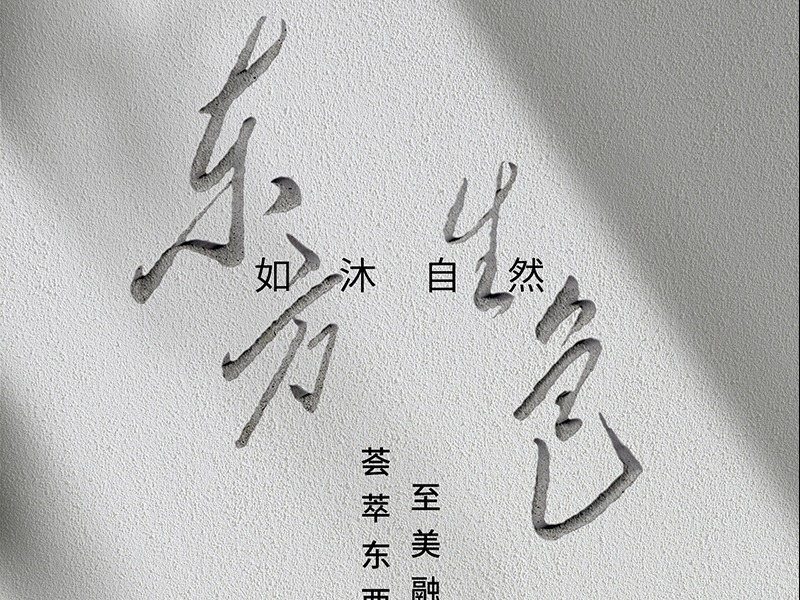 东方
生色
如沐自然
荟萃东西
至美融